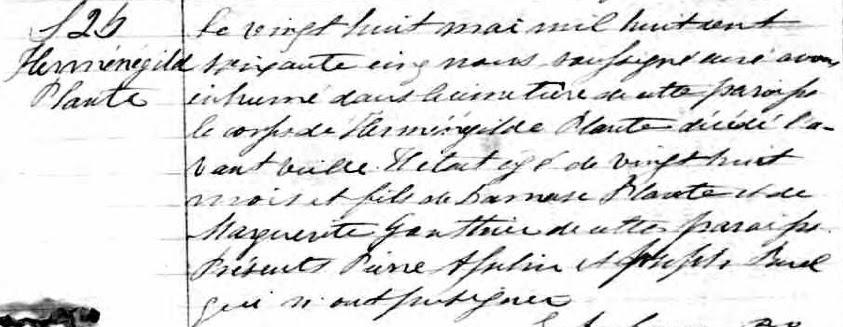 S 26
Herménégilde
Plante
Le vingt huit mai mil huit cent
soixante cinq nous soussigné curé avons
inhumé dans le cimetière de cette paroisse
le corps de Herménégilde Plante décédé l'a-
vant veille. Il était âgé de vingt huit
mois et fils de Damase Plante et de
Marguerite Gauthier de cette paroisse.
Présents Pierre Asselin et Joseph
qui n'ont pu signer